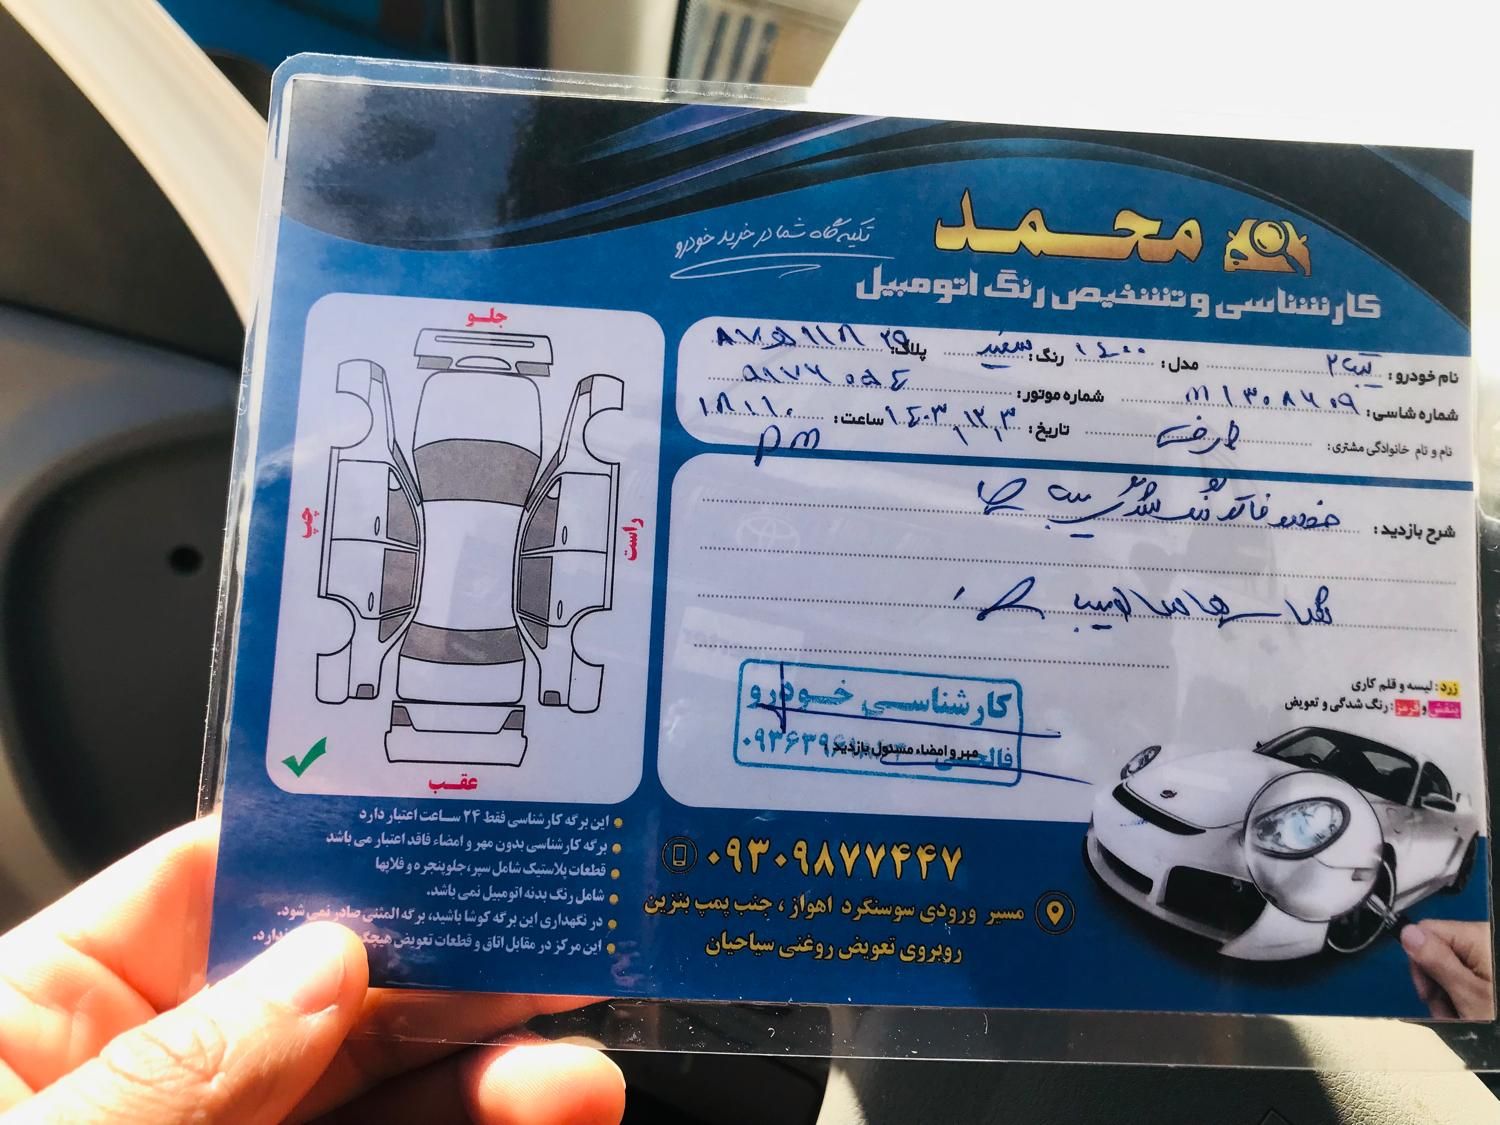 محمد
تکیه گاه شما در خرید خودرو
کارشناسی و تشخیص رنگ اتومبیل
نام خودرو: تیبا۲ مدل: ۱۴۰۰ رنگ: سفید پلاک:
شماره شاسی: شماره موتور:
نام و نام خانوادگی مشتری: تاریخ: ۱۴۰۳,۱۲,۳ ساعت: ۱۸:۱۰
PM
شرح بازدید:
جلو
چپ
راست
عقب
کارشناسی خودرو
مهر و امضاء مسئول بازدید
زرد: لیسه و قلم کاری
بنفش و قرمز: رنگ شدگی و تعویض
این برگه کارشناسی فقط ۲۴ ساعت اعتبار دارد
برگه کارشناسی بدون مهر و امضاء فاقد اعتبار می باشد
قطعات پلاستیک شامل سپر، جلوپنجره و قلاپها
شامل رنگ بدنه اتومبیل نمی باشد.
در نگهداری این برگه کوشا باشید، برگه المثنی صادر نمی شود.
این مرکز در مقابل اتاق و قطعات تعویض
۰۹۳۰۹۸۷۷۴۴۷
مسیر ورودی سوسنگرد اهواز ، جنب پمپ بنزین
روبروی تعویض روغنی سیاحیان